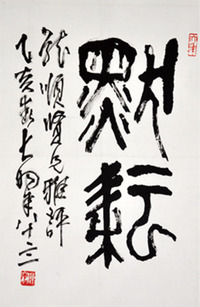 默耘
順賢兄雅評
乙亥歲大羽年八十三